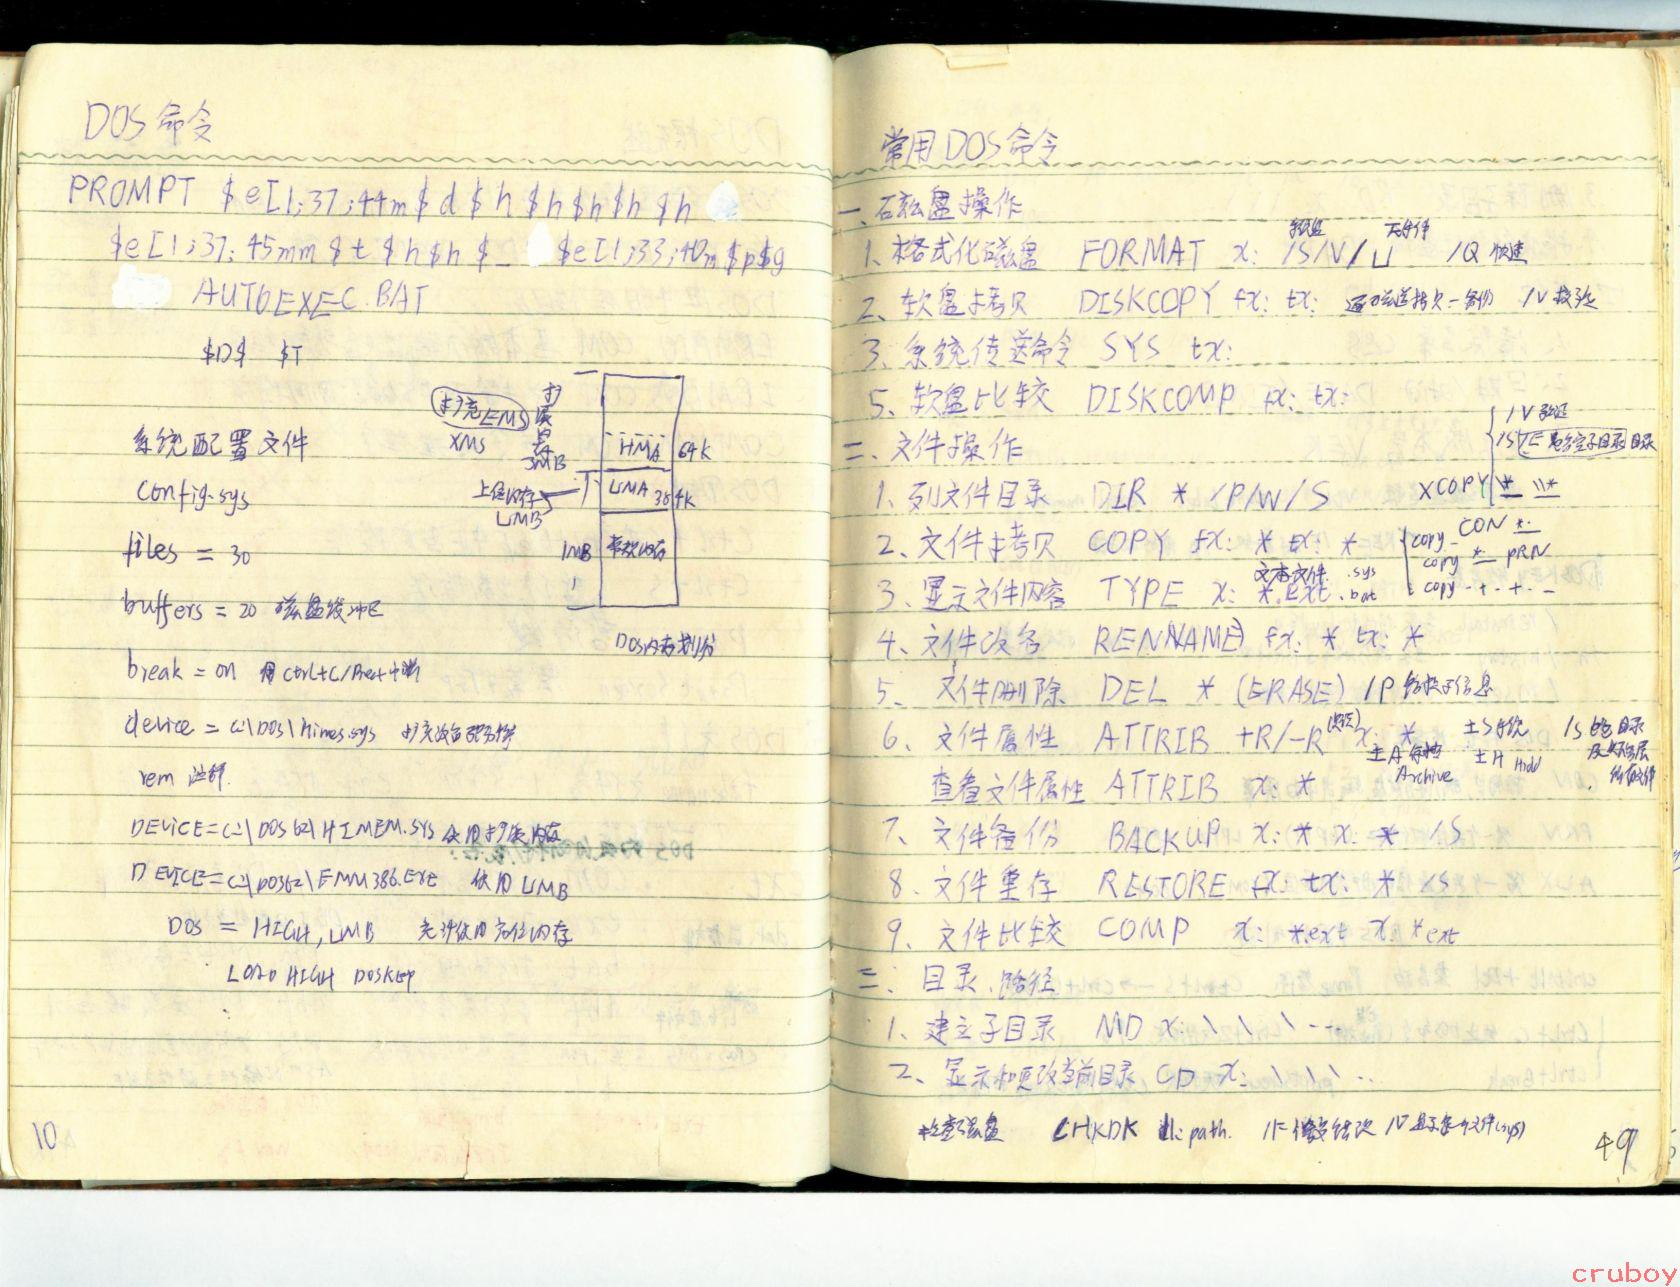 DOS 命令
PROMPT $e[1;37;44m$d$h$h$h$h$h
$e[1;37;45mm$t$h$h$_ $e[1;33;40m$p$g
AUTOEXEC.BAT
$D$ $T
系统配置文件
config.sys
files = 30
buffers = 20 磁盘缓冲区
break = on 用 Ctrl+C/Break 中断
device = C:\DOS\himes.sys 扩充设备驱动
rem 注释.
DEVICE=C:\DOS62\HIMEM.SYS 使用扩展内存
DEVICE=C:\DOS62\EMM386.EXE 使用 UMB
DOS = HIGH,UMB 允许使用高位内存
LOAD HIGH DOSKEY
扩充EMS
XMS
扩展
MB
HMA 64K
上位内存
UMB
UMA 384K
1MB 常规内存
DOS内存划分
10
常用 DOS 命令
一、磁盘操作
1、格式化磁盘 FORMAT x: /S/V/U /Q 快速
2、软盘拷贝 DISKCOPY fx: tx: 逐磁道拷贝一备份 /V 校验
3、系统传送命令 SYS tx:
5、软盘比较 DISKCOMP fx: tx:
二、文件操作
1、列文件目录 DIR * /P/W/S
XCOPY
/V 验证
/S /E 包含空子目录 目录
2、文件拷贝 COPY fx: * tx: *
copy CON *.
copy *. PRN
copy . + . + . _
3、显示文件内容 TYPE x: *.ext
文本文件 .sys
.bat
4、文件改名 REN(NAME) fx: * tx: *
5、文件删除 DEL * (ERASE) /P 给提示信息
6、文件属性 ATTRIB +R/-R (只读) x: *
±A 存档
Archive
±S 系统
±H Hidd
/S 目录
查看文件属性 ATTRIB x: *
7、文件备份 BACKUP x: * x: * /S
8、文件重存 RESTORE fx: tx: * /S
9、文件比较 COMP x: *.ext x *ext
三: 目录、路径
1、建立子目录 MD x: \ \ \ ...
2、显示和更改当前目录 CD x: \ \ \ ..
检查磁盘 CHKDK path. /F 修改错误 /V 显示文件(sys)
49
cruboy